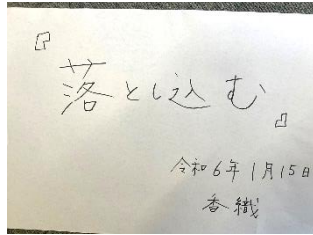 『落とし込む』
令和6年1月15日
香織